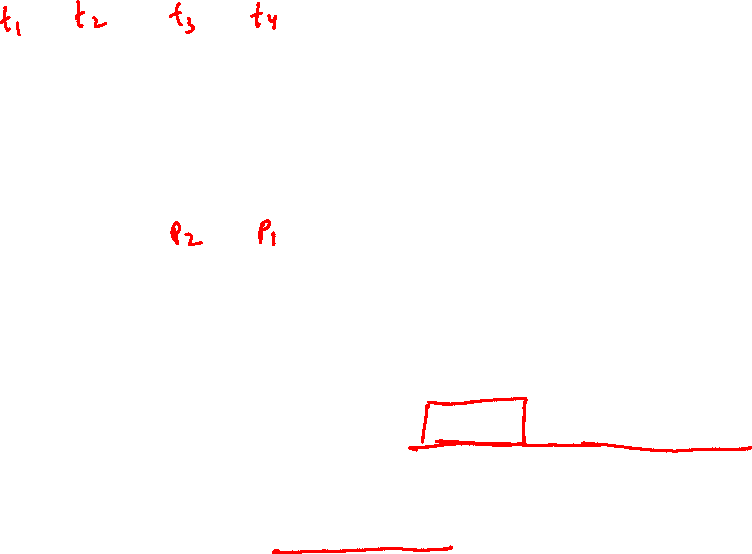 t1 t2 t3 t4
P2 P1